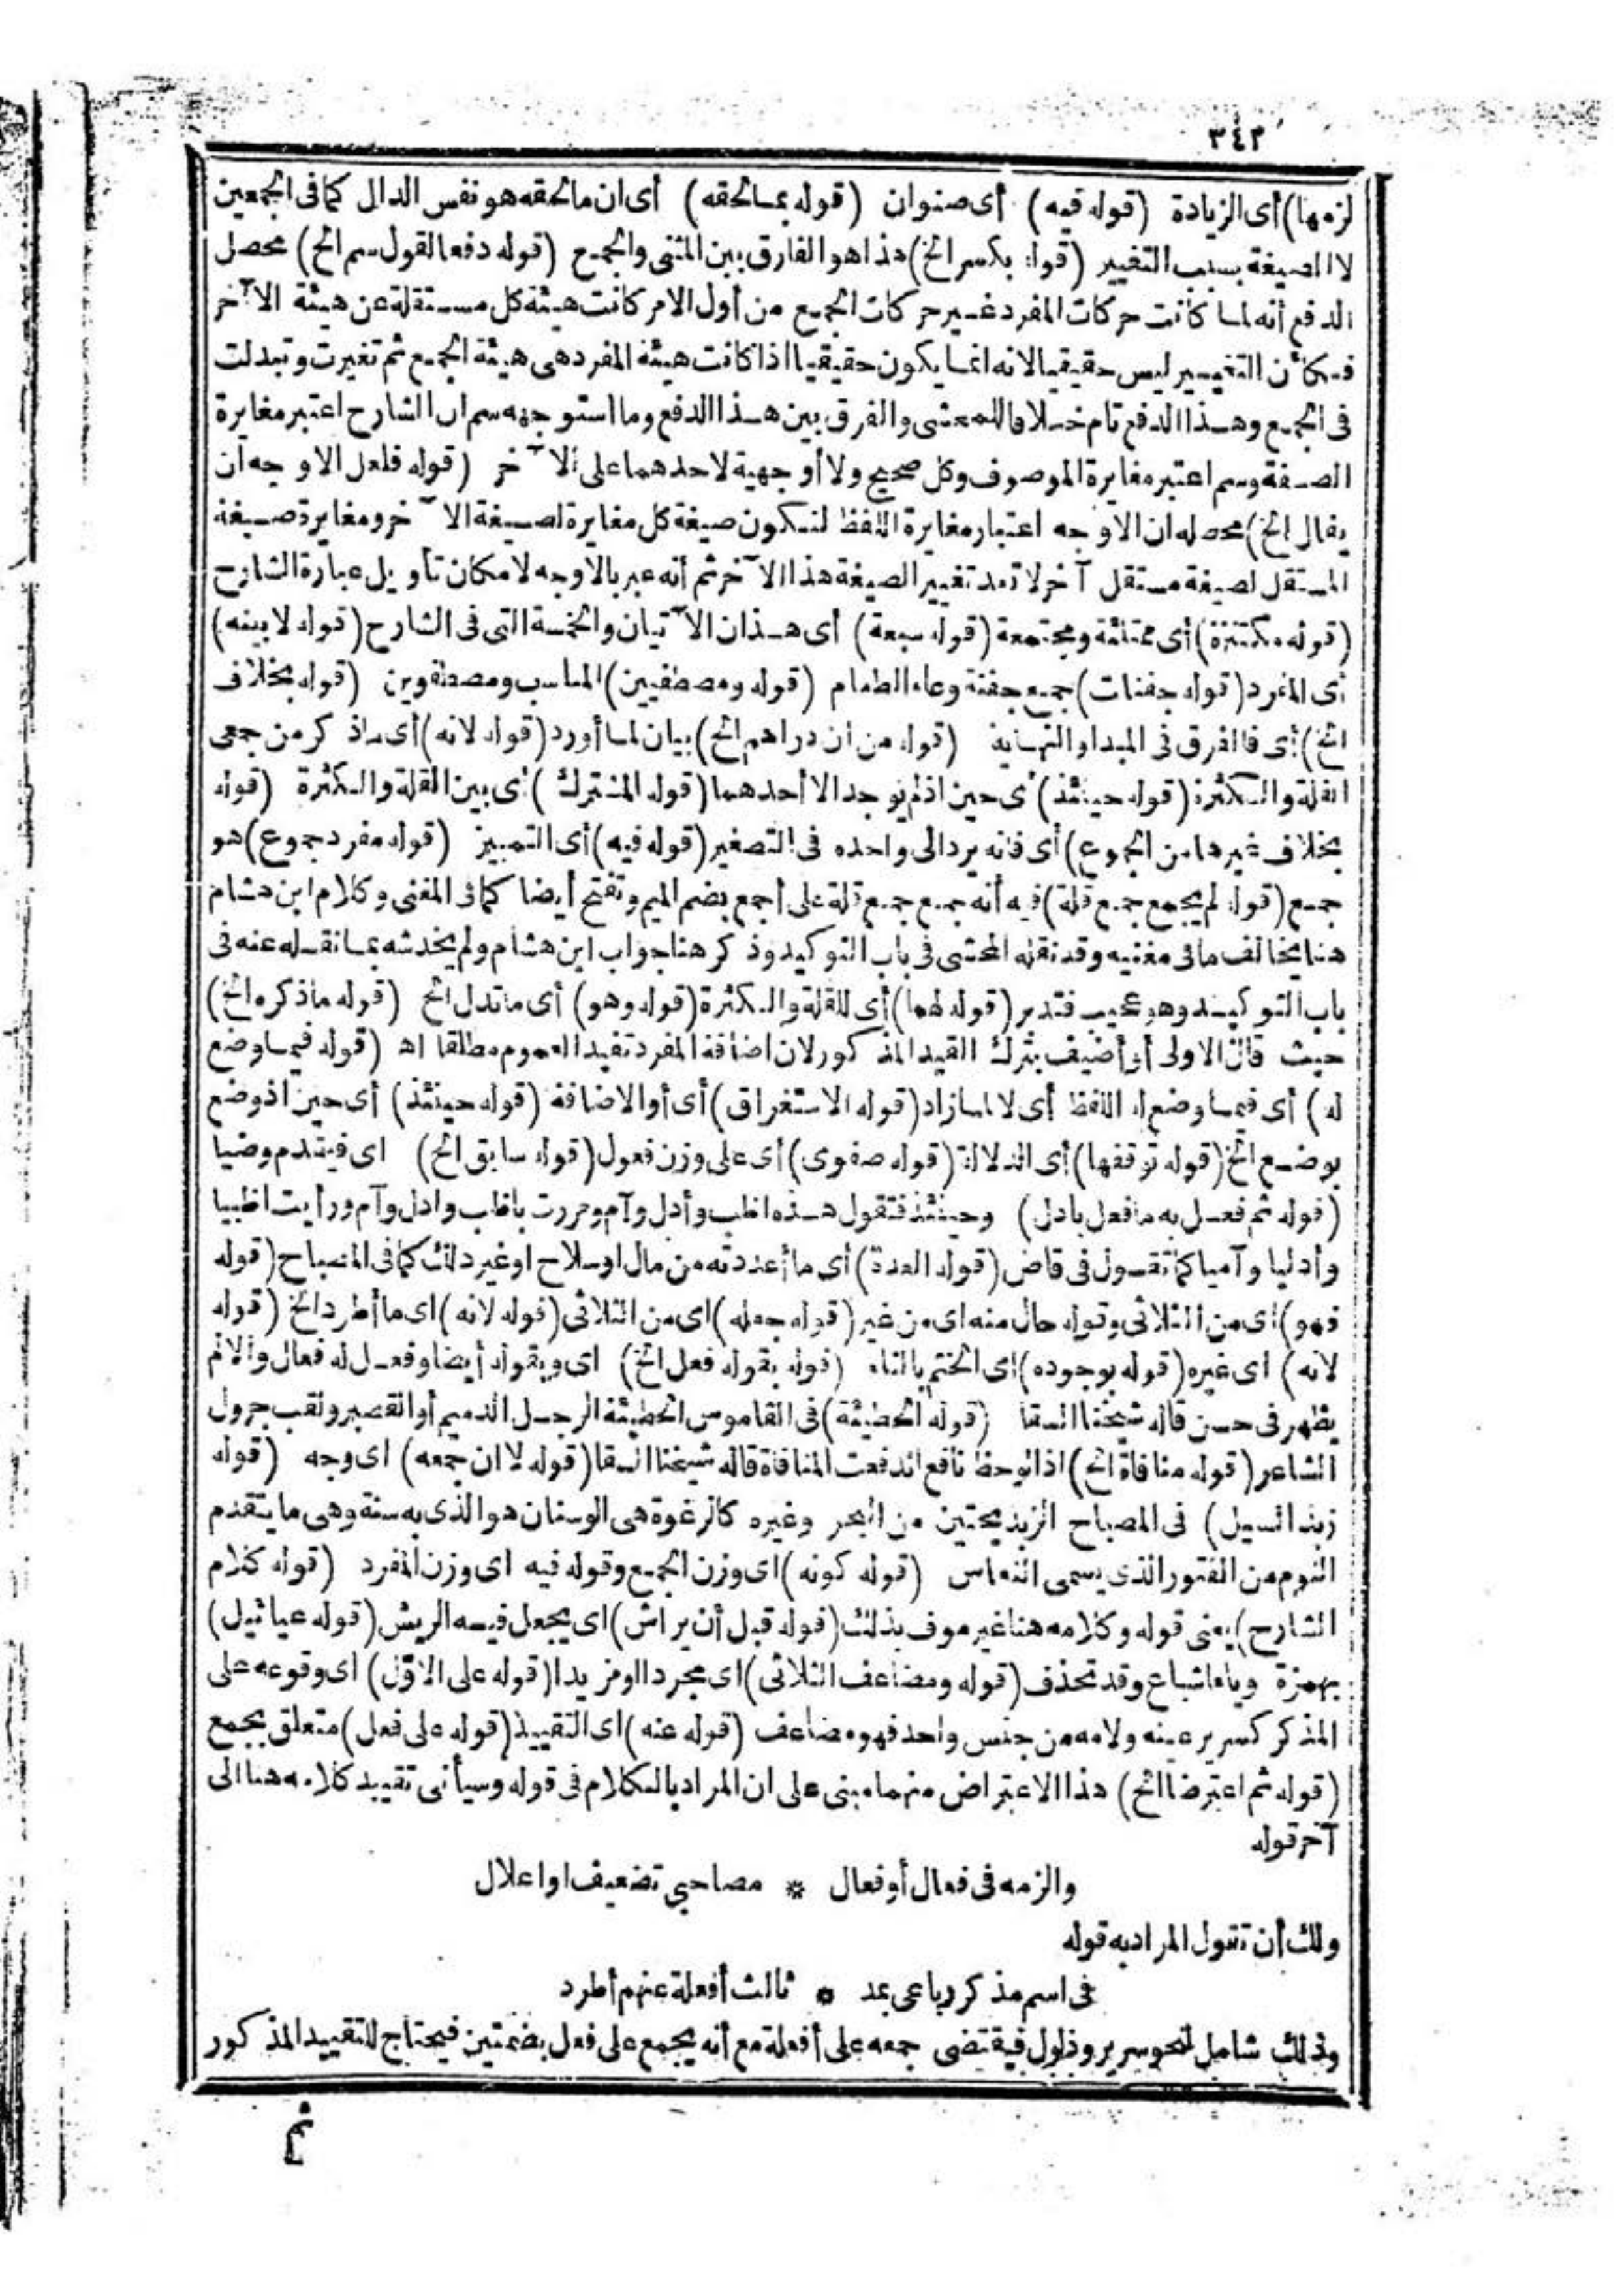 ٣٤٢
لزمها) أى الزيادة (قوله فيه) أى صنوان (قوله بمالحقه) أى ان مالحقه هو نفس الدال كما فى الجمعين
لا الصيغة بسبب التغيير (قوله بكسر الخ) هذا هو الفارق بين المثنى والجمع (قوله دفعا لقول سم الخ) محصل
الدفع أنه لما كانت حركات المفرد غير حركات الجمع من أول الامر كانت هيئة كل مستقلة عن هيئة الآخر
فكأن التغيير ليس حقيقيا لانه انما يكون حقيقيا اذا كانت هيئة المفرد هى هيئة الجمع ثم تغيرت وتبدلت
فى الجمع وهذا الدفع تام خلافا للمحشى والفرق بين هذا الدفع وما استوجهه سم ان الشارح اعتبر مغايرة
الصفة وسم اعتبر مغايرة الموصوف وكل صحيح ولا أوجهية لاحدهما على الآخر (قوله فلعل الاوجه أن
يقال الخ) محصله ان الاوجه اعتبار مغايرة اللفظ لتكون صيغة كل مغايرة لصيغة الآخر ومغايرة صيغة
المستقل لصيغة مستقل آخر لا تعد تغيير الصيغة هذا الآخر ثم أنه عبر بالاوجه لامكان تأويل عبارة الشارح
(قوله مكتنزة) أى ممتلئة ومجتمعة (قوله سبعة) أى هذان الآتيان والخمسة التى فى الشارح (قوله لا بينه)
أى المفرد (قوله جفنات) جمع جفنة وعاء الطعام (قوله ومصطفيين) المناسب ومصطفوين (قوله بخلاف
الخ) أى فالفرق فى المبدا والنهاية (قوله من ان دراهم الخ) بيان لما أورد (قوله لانه) أى ماذكر من جمعى
القلة والكثرة (قوله حينئذ) أى حين اذ لم يوجد الا أحدهما (قوله المشترك) أى بين القلة والكثرة (قوله
بخلاف غيرها من الجموع) أى فانه يرد الى واحده فى التصغير (قوله فيه) أى التمييز (قوله مفرد جموع) هو
جمع (قوله لم يجمع جمع قلة) فيه أنه جمع جمع قلة على أجمع بضم الميم وتفتح أيضا كما فى المغنى وكلام ابن هشام
هنا يخالف ما فى مغنيه وقد نقله المحشى فى باب التوكيد وذكر هنا جواب ابن هشام ولم يخدشه بما نقله عنه فى
باب التوكيد وهو عجيب فتدبر (قوله لهما) أى للقلة والكثرة (قوله وهو) أى ما تدل الخ (قوله ما ذكره الخ)
حيث قال الاولى أو أضيف بترك القيد المذكور لان اضافة المفرد تفيد العموم مطلقا اه (قوله فيما وضع
له) أى فيما وضع له اللفظ أى لا لما زاد (قوله الاستغراق) أى أو الاضافة (قوله حينئذ) أى حين اذ وضع
بوضع الخ (قوله توقفها) أى الدلالة (قوله صفوى) أى على وزن فعول (قوله سابق الخ) اى فيتدم وضيا
(قوله ثم فعل به ما فعل بادل) وحينئذ فتقول هذه اظب وأدل وآم ومررت باظب وادل وآم ورأيت اظبيا
وأدليا وآميا كما تقول فى قاض (قوله العدة) أى ما أعددته من مال او سلاح او غير ذلك كما فى المصباح (قوله
فهو) أى من الثلاثى وقوله حال منه اى من غير (قوله جعله) اى من الثلاثى (قوله لانه) اى ما أطرد الخ (قوله
لانه) اى غيره (قوله بوجوده) اى الختم بالتاء (قوله بقوله فعل الخ) اى وبقوله أيضا وفعل له فعال والالم
يظهر فى حسن قاله شيخنا السقا (قوله الحطيئة) فى القاموس الحطيئة الرجل الدميم أو القصير ولقب جرول
الشاعر (قوله منافاة الخ) اذا لوحظ نافع اندفعت المنافاة قاله شيخنا السقا (قوله لا ان جمعه) اى وجه (قوله
زبد السيل) فى المصباح الزبد بفتحتين من البحر وغيره كالرغوة هى الوسنان هو الذى به سنة وهى ما يتقدم
النوم من الفتور الذى يسمى النعاس (قوله كونه) اى وزن الجمع وقوله فيه اى وزن المفرد (قوله كلام
الشارح) يعنى قوله وكلامه هنا غير موف بذلك (قوله قبل أن يراش) اى يجعل فيه الريش (قوله عيائيل)
بهمزة وياء اشباع وقد تحذف (قوله ومضاعف الثلاثى) اى مجردا او مزيدا (قوله على الاوّل) اى وقوعه على
المذكر كسرير عينه ولامه من جنس واحد فهو مضاعف (قوله عنه) اى التقييد (قوله على فعل) متعلق بجمع
(قوله ثم اعترضا الخ) هذا الاعتراض منهما مبنى على ان المراد بالكلام فى قوله وسيأتى تقييد كلامه هنا الى
آخر قوله
والزمه فى فعال أو فعال * مصاحبى تضعيف او اعلال
ولك أن تقول المراد به قوله
فى اسم مذكر رباعى بمد * ثالث أفعلة عنهم أطرد
وذلك شامل لنحو سرير وذلول فيقتضى جمعه على أفعلة مع أنه يجمع على فعل بضمتين فيحتاج للتقييد المذكور